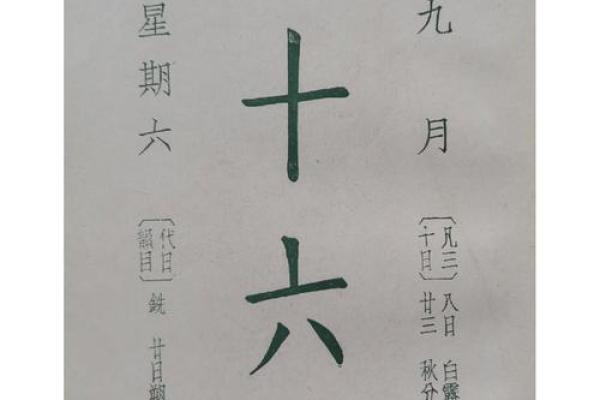 九月
〔凡三十日〕
八日 白露
廿三 秋分
十六
星期六
〔代日韻目〕
銑
廿日